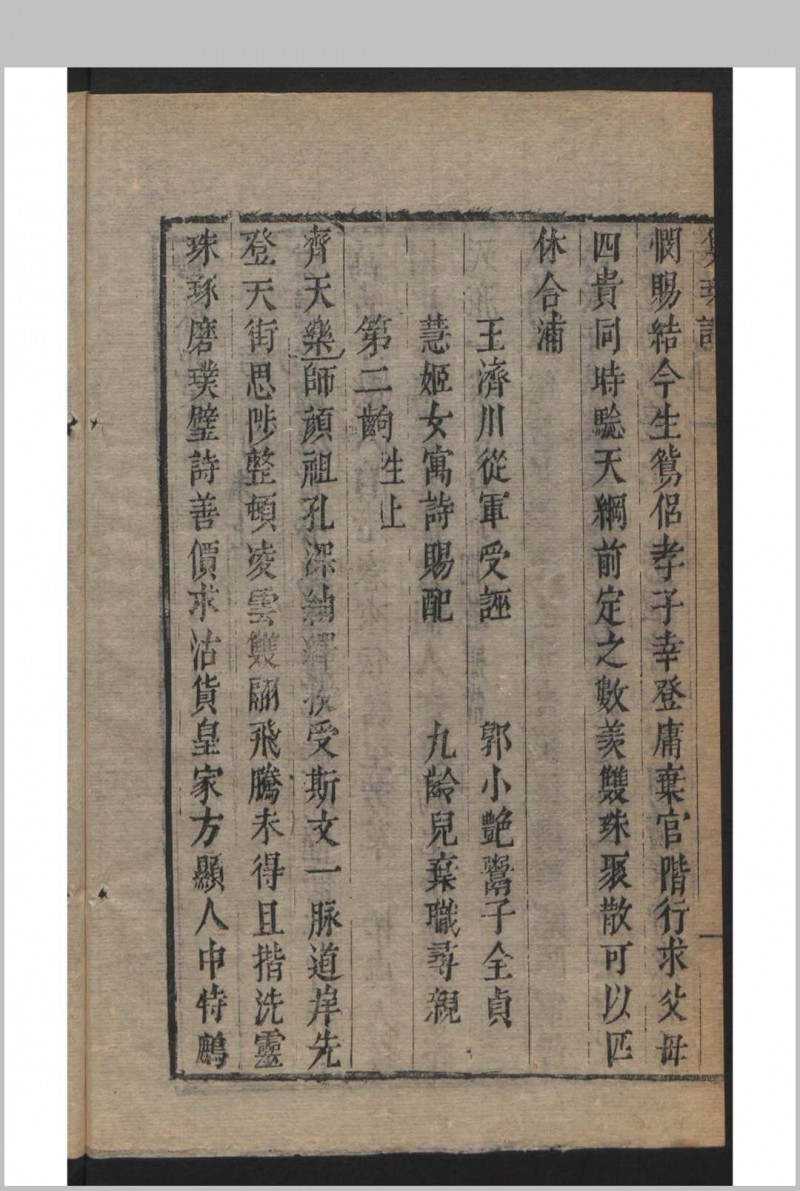 雙珠記
憫賜結今生鴛侶孝子幸登庸棄官階行求父母
四貴同時騐天綱前定之數羡雙珠聚散可以匹
休合浦
王濟川從軍受誣　郭小艷鬻子全貞
慧姬女寓詩賜配　九齡兒棄職尋親
第二齣 生上
齊天樂師顔祖孔深紬繹授受斯文一脉道岸先
登天街思陟整頓凌雲雙翮飛騰未得且揩洗靈
珠琢磨璞璧詩善價求沽貨皇家方顯人中特鷓